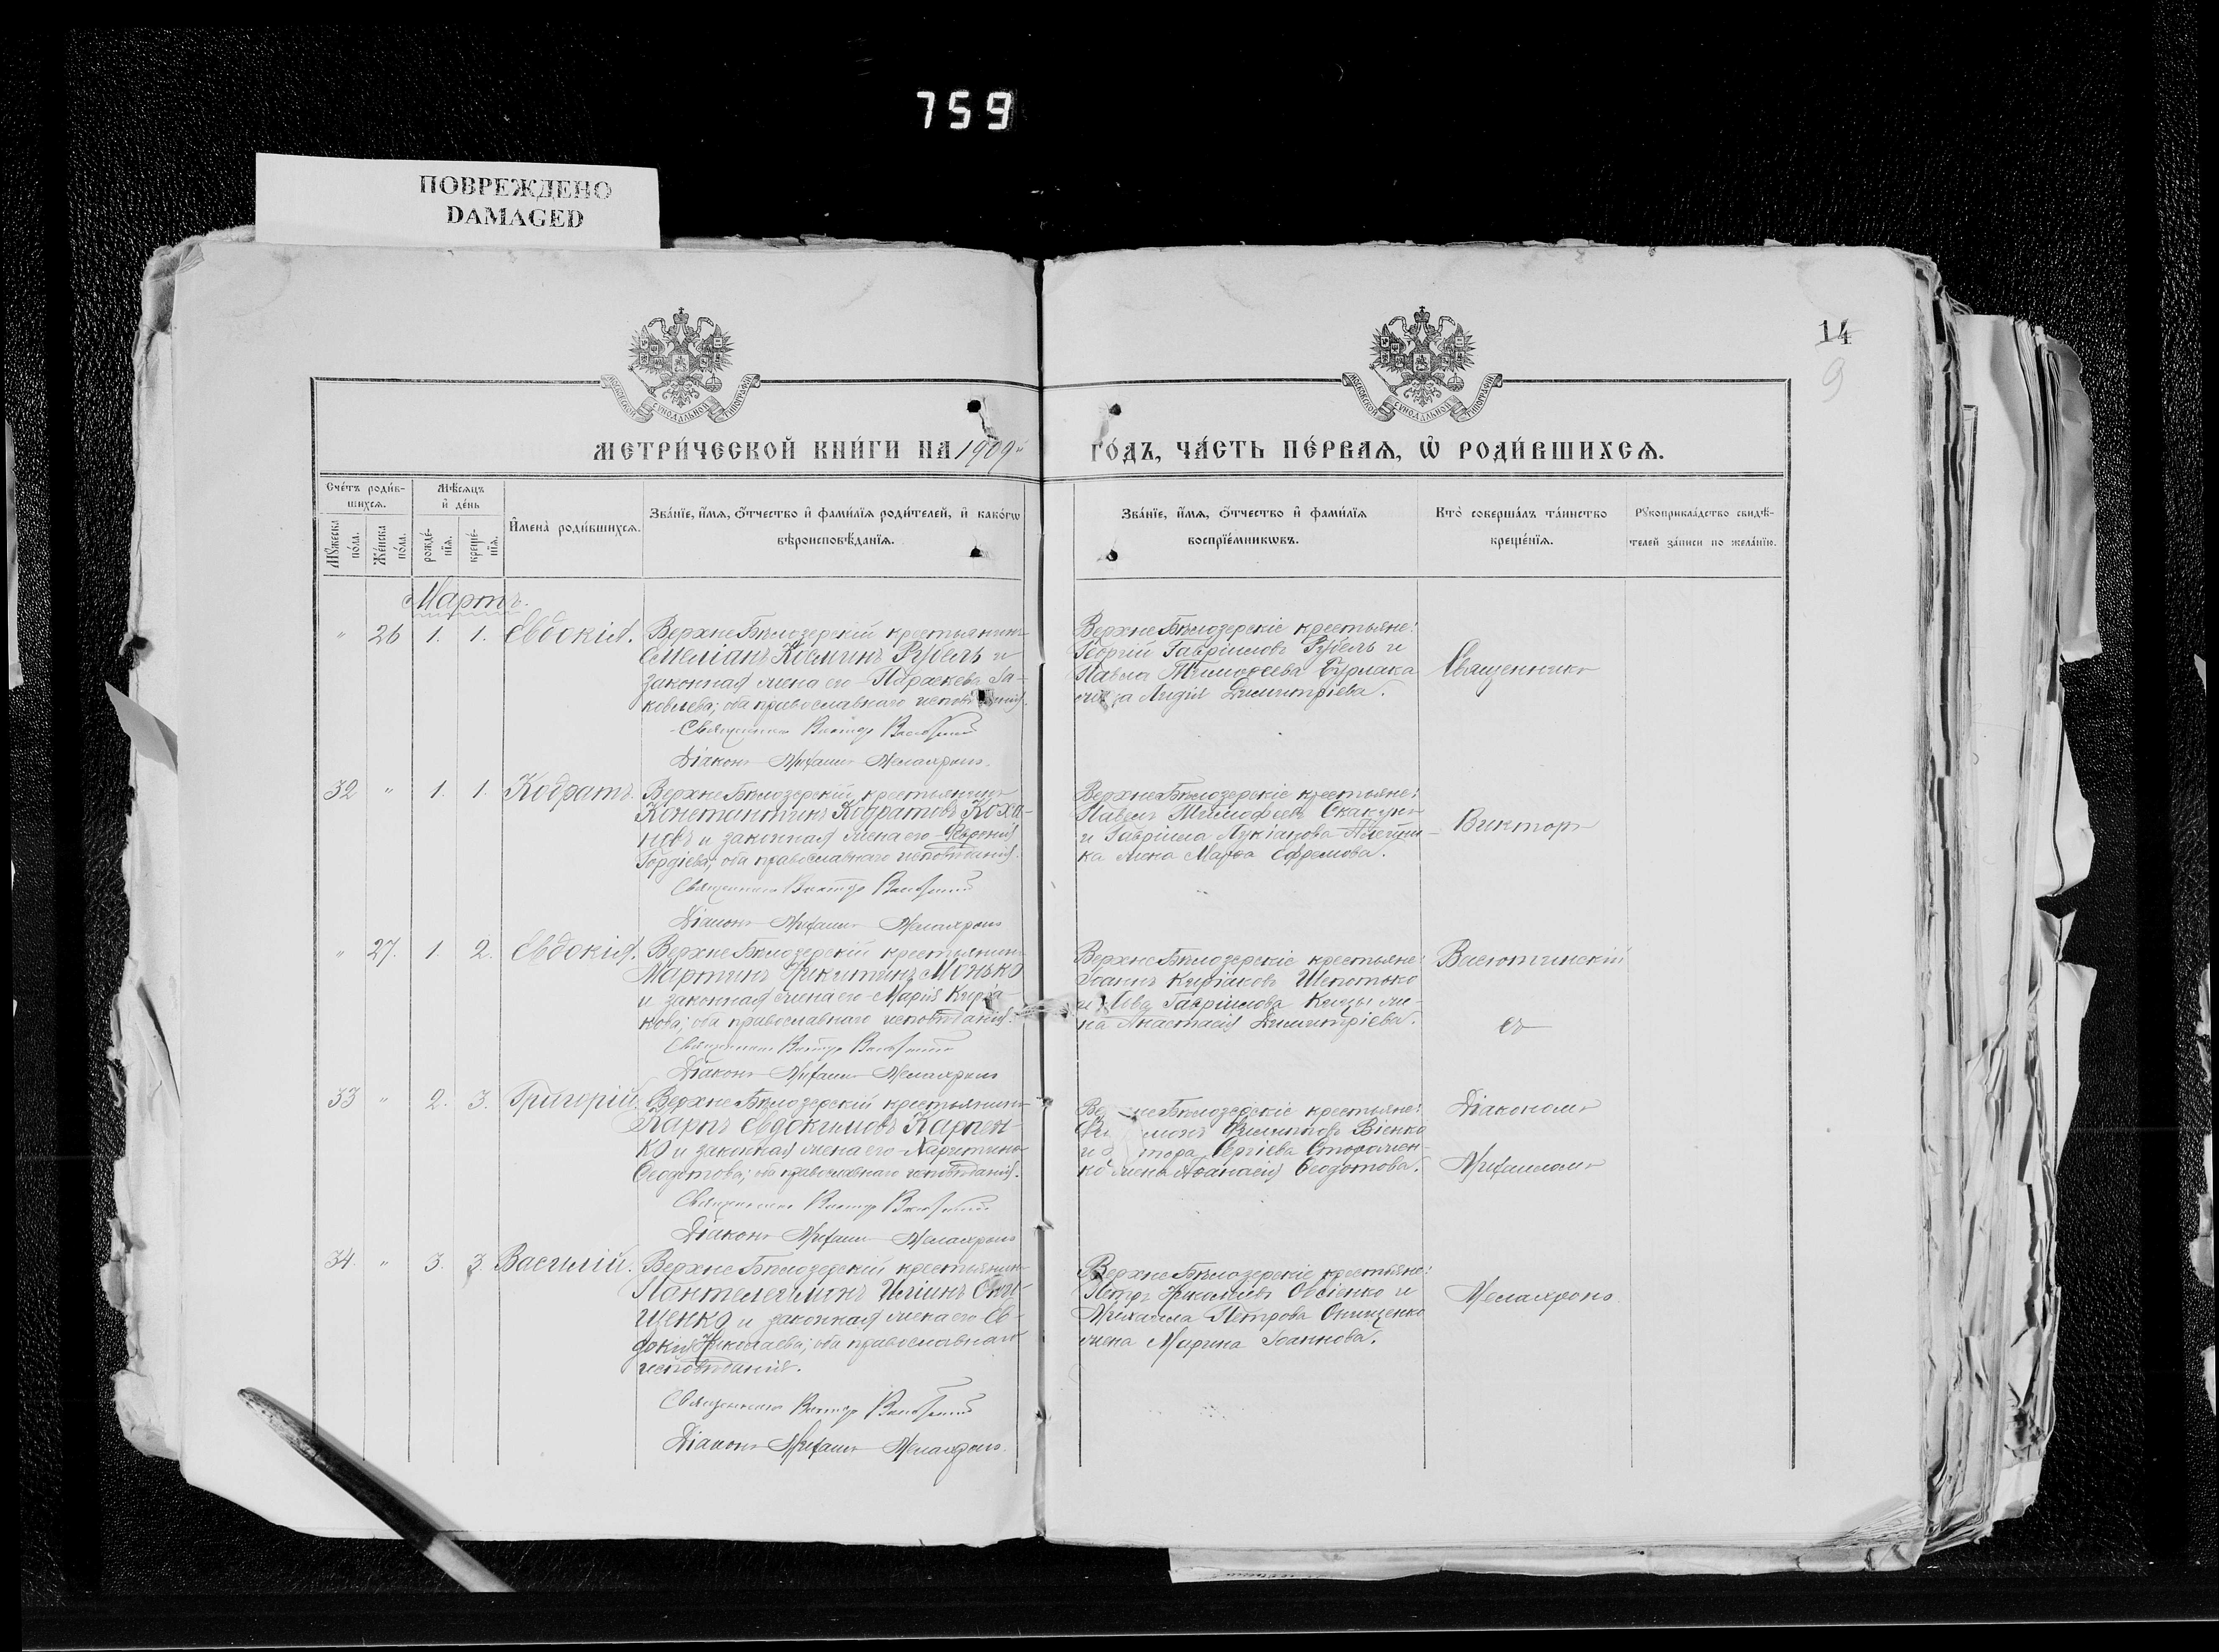 759
ПОВРЕЖДЕНО
DAMAGED
14
9
МЕТРИ́ЧЕСКОЙ КНИ́ГИ НА 1909й
ГО́ДЪ, ЧА́СТЬ ПЕ́РВАѦ, Ѡ҆ РОДИ́ВШИХСѦ.
Сче́тъ роди́в-
шихсѧ.
Мѣ́сѧцъ
и҆ де́нь
Мꙋ́жеска по́ла.
Же́нска по́ла.
рожде́-
нїѧ.
креще́-
нїѧ.
И҆мена̀ роди́вшихсѧ.
Зва́нїе, и҆́мѧ, ѻ҆́тчество и҆ фами́лїѧ роди́телей, и҆ како́гѡ
вѣроисповѣ́данїѧ.
Зва́нїе, и҆́мѧ, ѻ҆́тчество и҆ фами́лїѧ
воспрїе́мникѡвъ.
Кто̀ соверша́лъ та́инство
креще́нїѧ.
Рꙋкоприкла́дство свидѣ́-
телей за́писи по жела́нїю.
Мартъ.
" 26 1. 1. Евдокія.
ВерхнеБѣлозерскій крестьянинъ
Емеліанъ Косминъ Рубель и
законная жена его Параскева Іа-
ковлева; оба православнаго исповѣданія.
Священникъ Викторъ Васютинскій
Діаконъ Михаилъ Мелахронъ.
ВерхнеБѣлозерскіе крестьяне:
Георгій Гавріиловъ Рубель и
Павла Тимоѳеева Бурлака
жена Лидія Димитріева.
Священникъ
32 " 1. 1. Кодратъ.
ВерхнеБѣлозерскій крестьянинъ
Константинъ Кодратовъ Коха-
новъ и законная жена его Феронія
Гордіева; оба православнаго исповѣданія.
Священникъ Викторъ Васютинскій
Діаконъ Михаилъ Мелахронъ
ВерхнеБѣлозерскіе крестьяне:
Павелъ Тимофеевъ Скакунъ
и Гавріила Лукіанова Алейни-
ка жена Марѳа Ефремова.
Викторъ
" 27. 1. 2. Евдокія.
ВерхнеБѣлозерскій крестьянинъ
Мартинъ Никитинъ Монько
и законная жена его Марія Киріа-
кова; оба православнаго исповѣданія.
Священникъ Викторъ Васютинскій
Діаконъ Михаилъ Мелахронъ
ВерхнеБѣлозерскіе крестьяне:
Іоаннъ Киріаковъ Шепотько
и Іова Гавріилова Кнезы же-
на Анастасія Димитріева.
Васютинскій
съ
33 " 2. 3. Григорій.
ВерхнеБѣлозерскій крестьянинъ
Карпъ Евдокимовъ Карпен-
ко и законная жена его Харитина
Ѳеодотова; оба православнаго исповѣданія.
Священникъ Викторъ Васютинскій
Діаконъ Михаилъ Мелахронъ
крестьяне:
Филипповъ Віенко
и Сергіева Сторожен-
ко жена Аѳанасія Ѳеодотова.
Діакономъ
Михаиломъ
34. " 3. 3. Василій.
ВерхнеБѣлозерскій крестьянинъ
Пантелеимонъ Иліинъ Они-
щенко и законная жена его Ев-
докія Николаева; оба православнаго
исповѣданія.
Священникъ Викторъ Васютинскій
Діаконъ Михаилъ Мелахронъ.
ВерхнеБѣлозерскіе крестьяне:
Петръ Николаевъ Овсіенко и
Михаила Петрова Онищенко
жена Марина Іоаннова.
Мелахронъ.